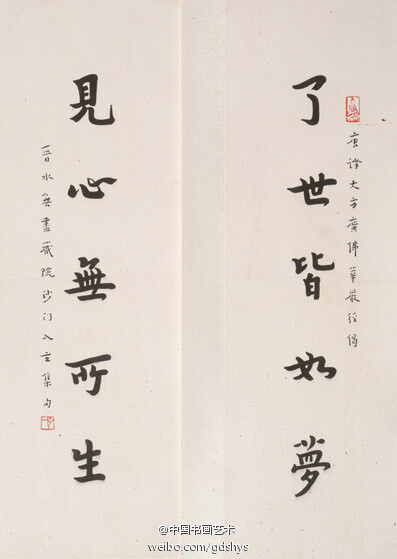 唐譯大方廣佛華嚴經偈
了世皆如夢
見心無所生
晉水無盡藏院沙门入玄集句
@中国书画艺术
weibo.com/gdshys